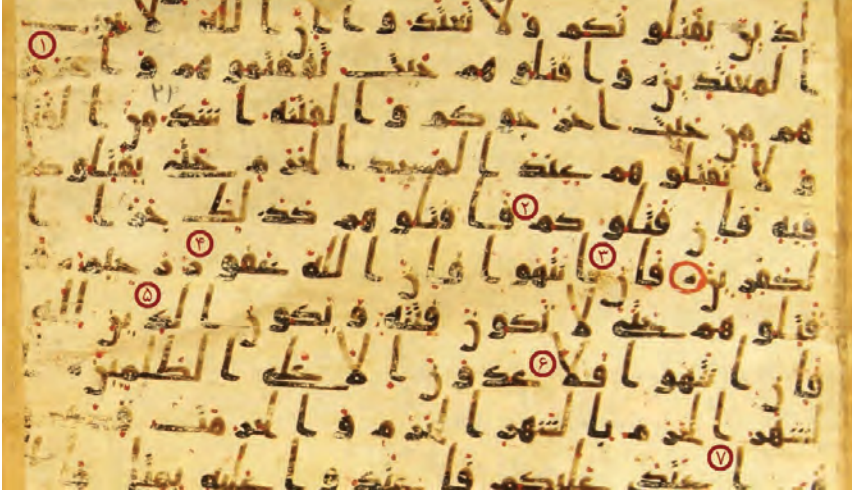 لذين يقتلونكم ولا تعتدوا ان الله لا يحب ۱
المعتدين واقتلوهم حيث ثقفتموهم واخرجو
هم من حيث اخرجوكم والفتنه اشد من القتل
ولا تقتلوهم عند المسجد الحرم حتى يقتلوكم
فيه فان قتلوكم ۲ فاقتلوهم كذلك جزا ا
لكفرين فان ۳ انتهوا فان الله غفور ۴ رحيم و
قتلوهم حتى لا تكون فتنه ويكون الدين ۵ لله
فان انتهوا فلا ۶ عدون الا على الظلمين ا
لشهر الحرم بالشهر الحرم والحرمت
فمن اعتدى ۷ عليكم فاعتدوا عليه بمثل